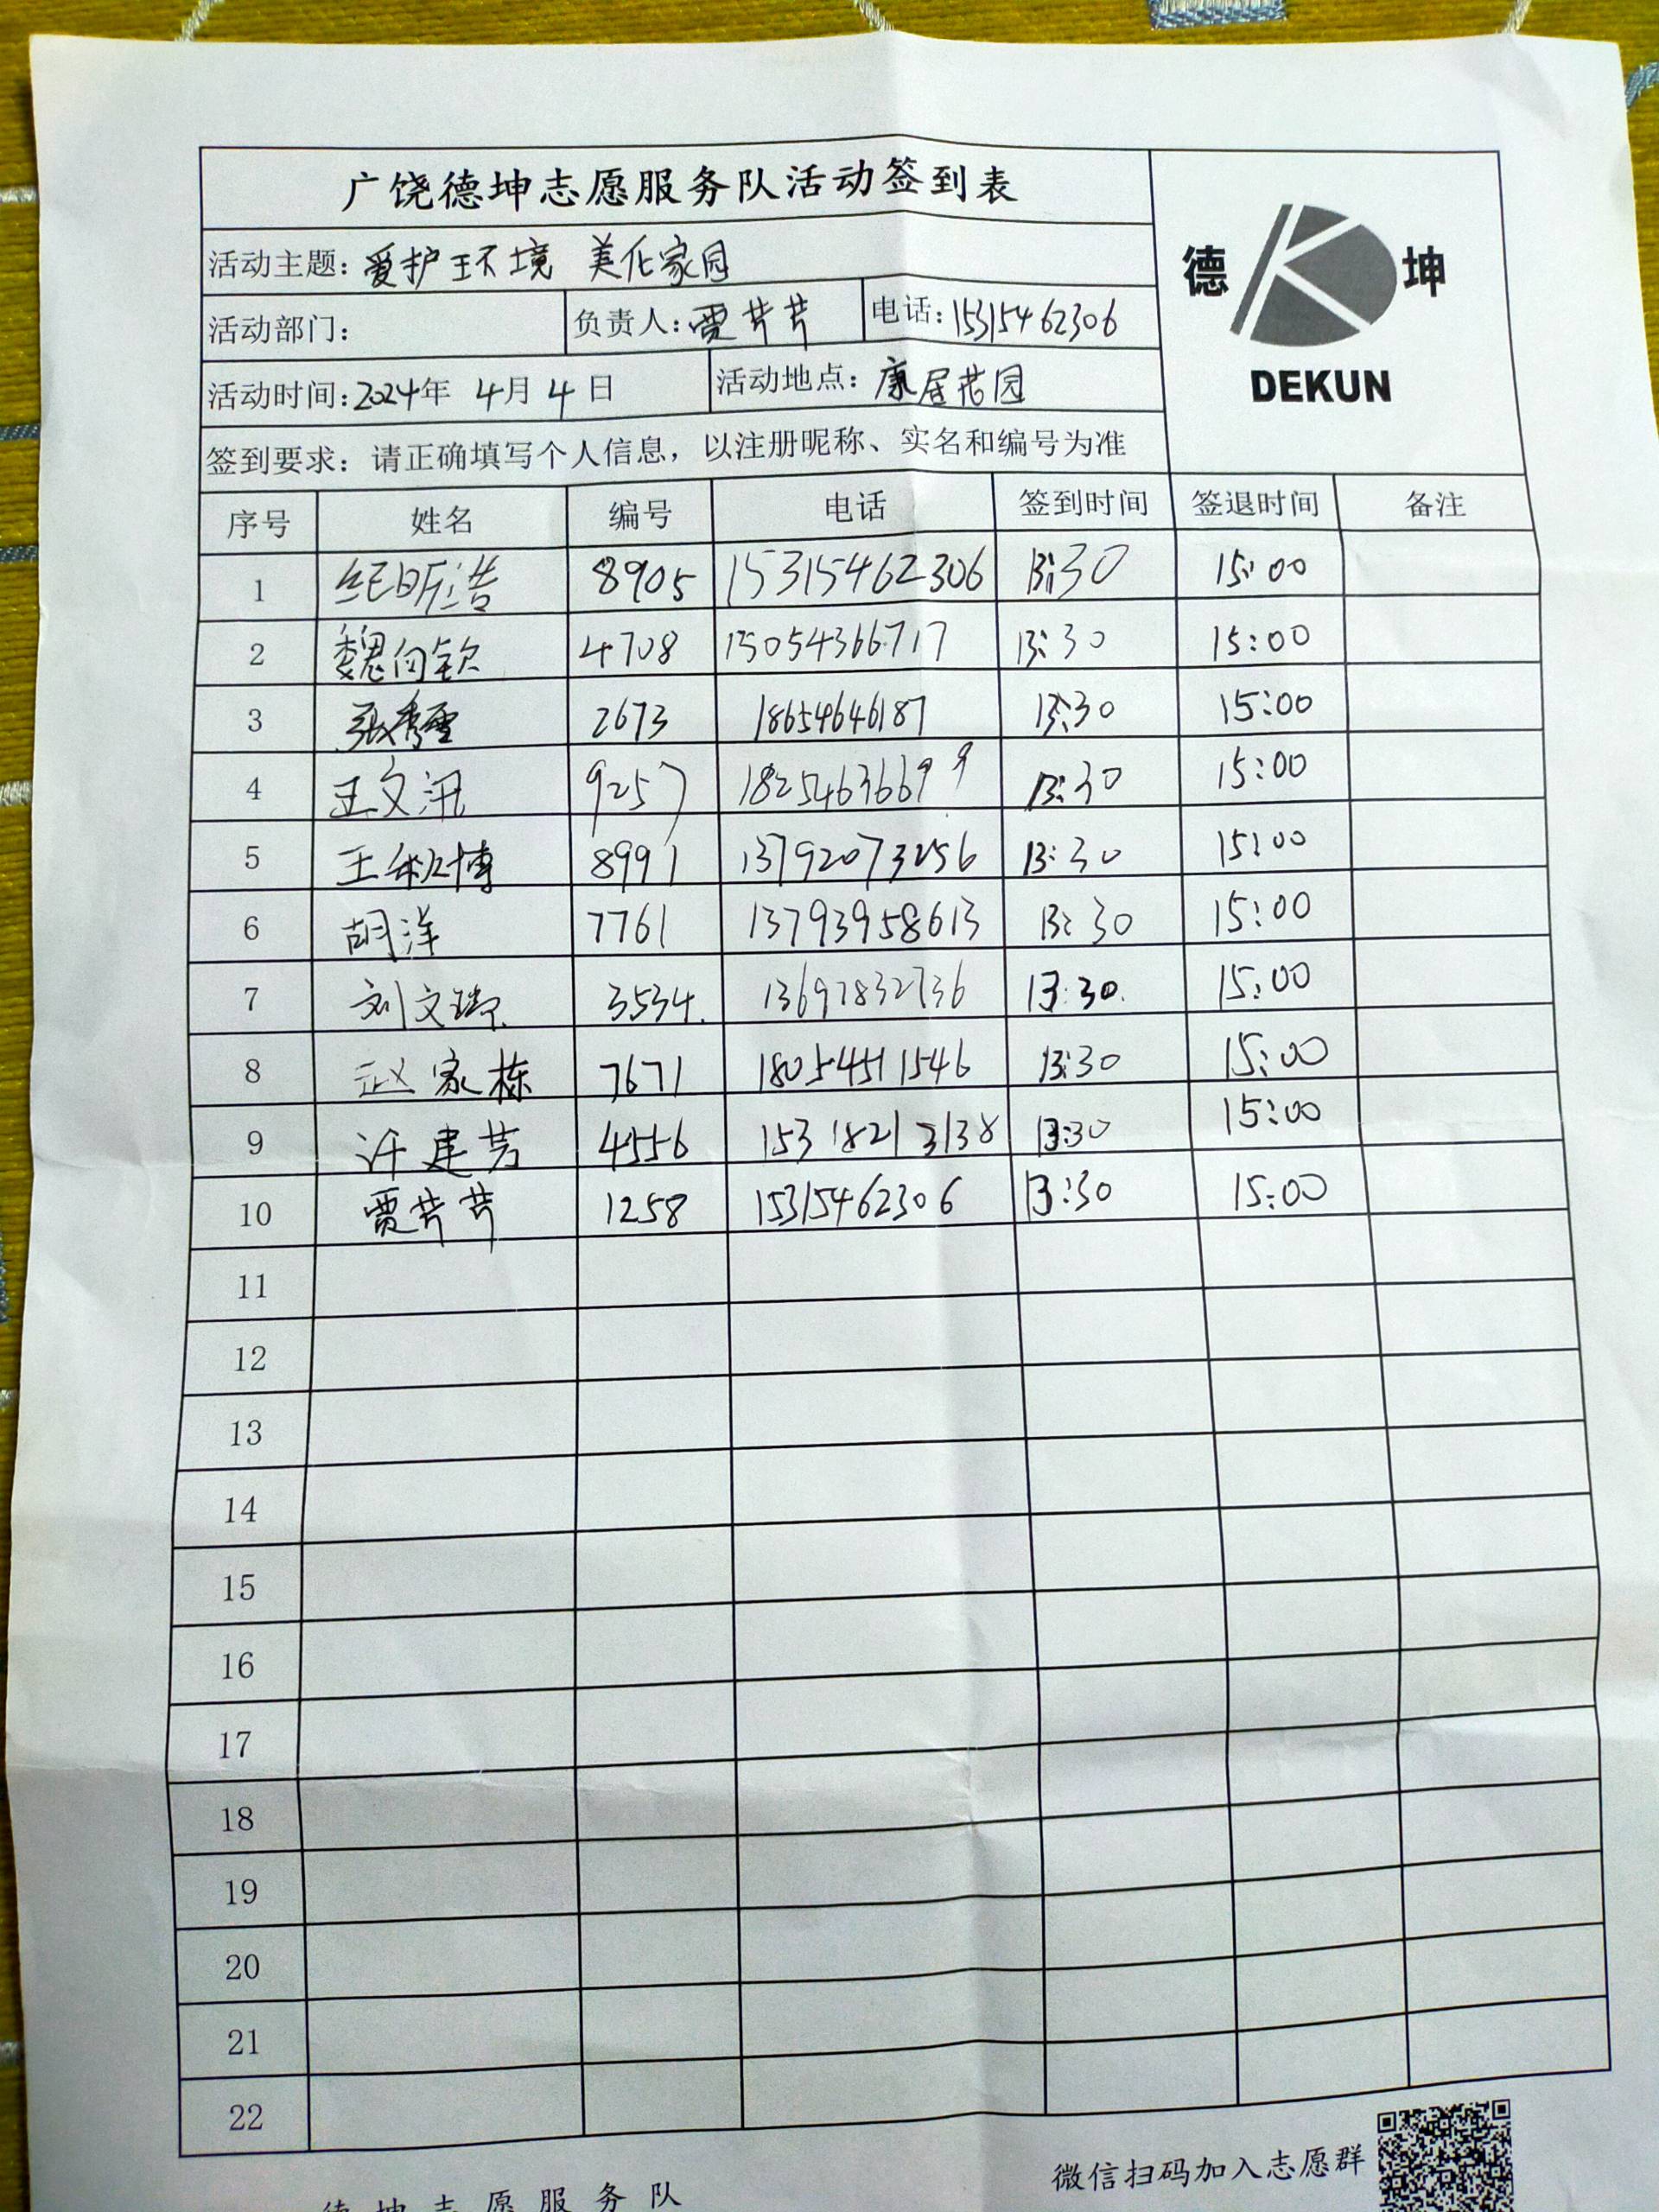 广饶德坤志愿服务队活动签到表
德 坤
DEKUN
活动主题：爱护环境 美化家园
活动部门： 负责人：贾芹芹 电话：15315462306
活动时间：2024年 4月 4日 活动地点：康居花园
签到要求：请正确填写个人信息，以注册昵称、实名和编号为准
序号 姓名 编号 电话 签到时间 签退时间 备注
1 纪昕浩 8905 15315462306 13:30 15:00
2 魏向钦 4708 15054366717 13:30 15:00
3 张秀 2673 18654646187 13:30 15:00
4 王文汛 9257 18254636699 13:30 15:00
5 王 博 8991 13792073256 13:30 15:00
6 胡洋 7761 13793958613 13:30 15:00
7 刘文瑞 3534 13697832736 13:30 15:00
8 赵家栋 7671 18054511546 13:30 15:00
9 许建芳 4556 15318213138 13:30 15:00
10 贾芹芹 1258 15315462306 13:30 15:00
11
12
13
14
15
16
17
18
19
20
21
22
微信扫码加入志愿群
德坤志愿服务队